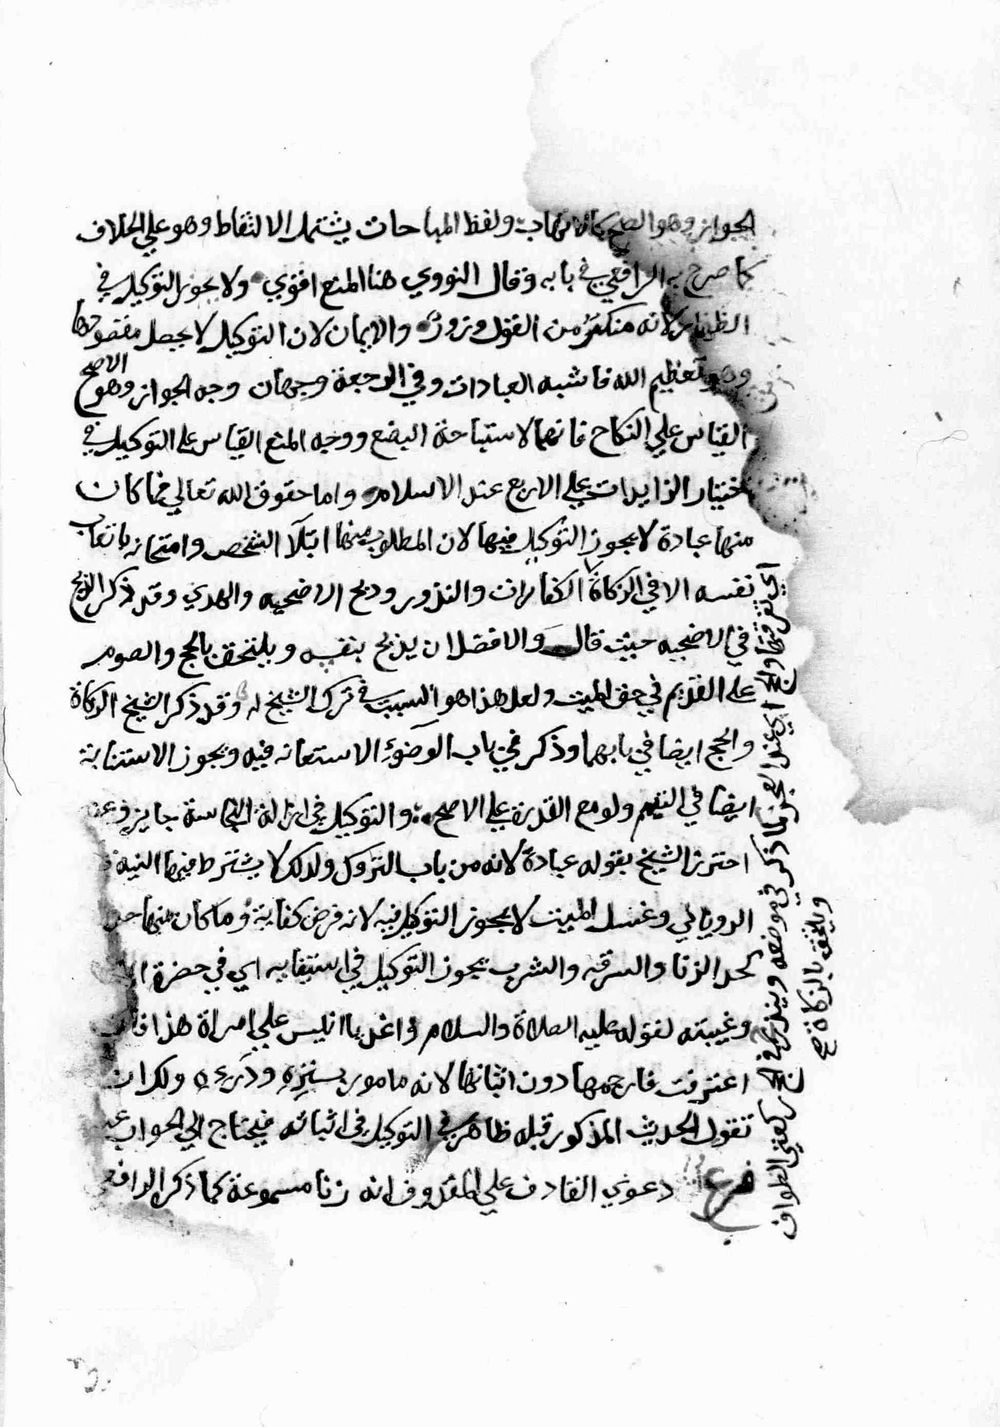 الجواز وهو الصحيح كما ولفظ المباحات يشتمل الالتقاط وهو علي الخلاف
كما صرح به الرافعي في بابه وقال النووي هنا المنع اقوي ولا يجوز التوكيل في
الظهار لانه منكر من القول وزور والايمان لان التوكيل لا يحصل مقصودها
وهو تعظيم الله فاشبه العبادات وفي الرجعة وجهان وجه الجواز وهو الاصح
القياس علي النكاح فانهما لاستباحة البضع ووجه المنع القياس علي التوكيل في
اختيار الزايدات علي الاربع عند الاسلام واما حقوق الله تعالي فما كان
منها عبادة لا يجوز التوكيل فيها لان المطلوب منها ابتلآ الشخص وامتحانه باتعاب
نفسه الا في الزكاة الكفارات والنذور وذبح الاضحيه والهدي وقد ذكر الذبح
في الاضحيه حيث قال والافضل ان يذبح بنفسه ويلتحق بالحج والصوم
علي القديم في حق الميت ولعل هذا هو السبب في ترك الشيخ له وقد ذكر الشيخ الزكاة
والحج ايضا في بابهما وذكر في باب الوضوء الاستعانه فيه ويجوز الاستنابة
ايضا في التيمم ولو مع القدرة علي الاصح والتوكيل في ازالة النجاسة جايز وعنه
احترز الشيخ بقوله عبادة لانه من باب التروك ولذلك لا يشترط فيها النية
الروياني وغسل الميت لا يجوز التوكيل فيه لانه فرض كفاية وما كان منها حد
كحد الزنا والسرقه والشرب يجوز التوكيل في استيفايه اي في حضرة
وغيبته لقوله عليه الصلاة والسلام واغد يا انيس علي امراة هذا فان
اعترفت فارجمها دون اثباتها لانه مامور بستره ودرءه ولك ان
تقول الحديث المذكور قبله ظاهر في التوكيل في اثباته فيحتاج الي الجواب عنه
فرع دعوي القاذف علي المقذوف انه زنا مسموعة كما ذكر الرافعي
اي عند العجز كما ذكر في موضعه ويندرج في الحج ركعتي الطواف
ويلتحق بالزكاة صح